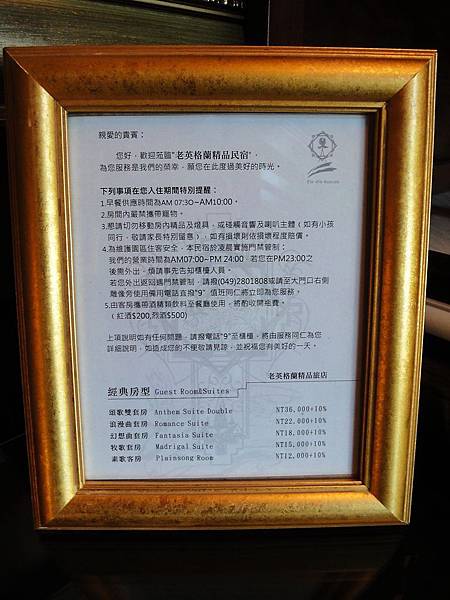 親愛的貴賓：
您好，歡迎蒞臨"老英格蘭精品民宿"，
為您服務是我們的榮幸，願您在此度過美好的時光。
下列事項在您入住期間特別提醒：
1.早餐供應時間為AM 07:30~AM10:00。
2.房間內嚴禁攜帶寵物。
3.懇請切勿移動房內精品及燈具，或碰觸音響及喇叭主體（如有小孩
同行，敬請家長特別留意），如有損壞則依損壞程度賠償。
4.為維護園區住客安全，本民宿於凌晨實施門禁管制；
我們的營業時間為AM07:00~ PM 24:00，若您在PM23:00之
後需外出，煩請事先告知櫃檯人員。
若您外出返回遇門禁管制，請撥(049)2801808或請至大門口右側
雕像旁使用備用電話直撥"9"，值班同仁將立即為您服務。
5.由客房攜帶酒精類飲料至餐廳使用，將酌收開瓶費。
（紅酒$200,烈酒$500）
上項說明如有任何問題，請撥電話"9"至櫃檯，將由服務同仁為您
詳細說明，如造成您的不便敬請見諒，並祝福您有美好的一天。
老英格蘭精品旅店
經典房型 Guest Room&Suites
頌歌雙套房 Anthem Suite Double NT36,000+10%
浪漫曲套房 Romance Suite NT22,000+10%
幻想曲套房 Fantasia Suite NT18,000+10%
牧歌套房 Madrigal Suite NT15,000+10%
素歌客房 Plainsong Room NT12,000+10%